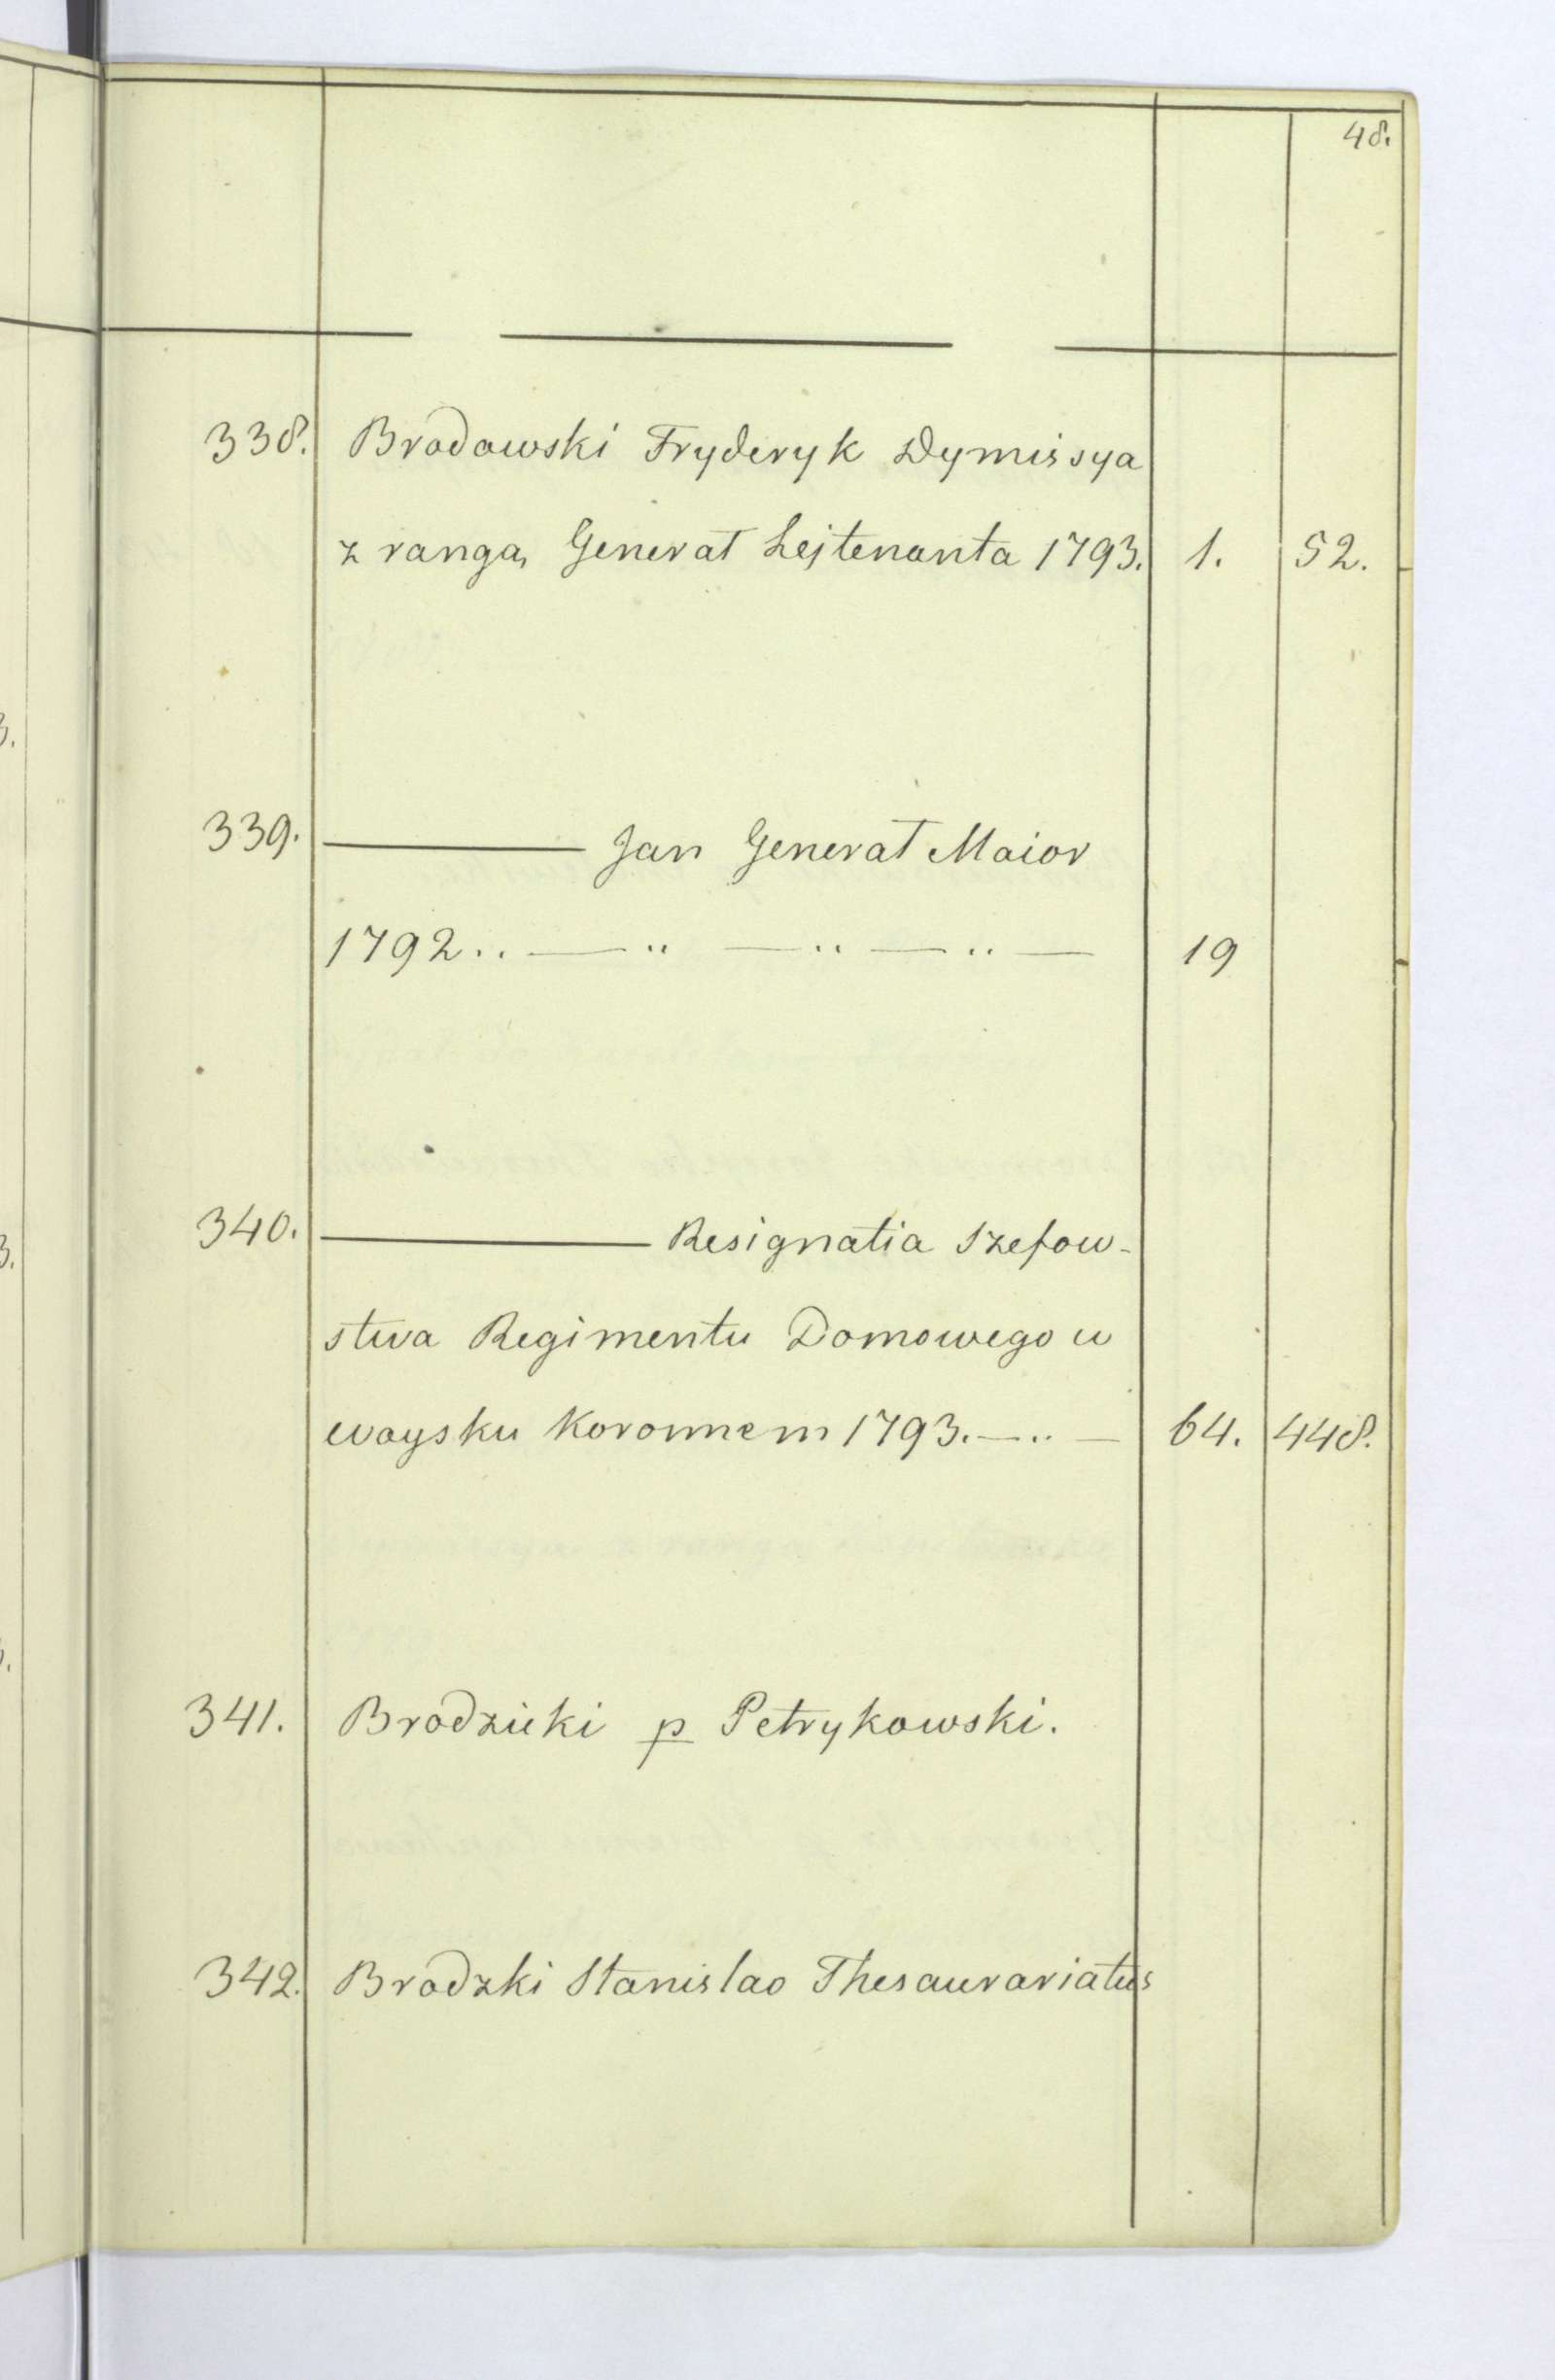 48.
338. Brodowski Fryderyk Dymissya
z rangą Generał Lejtenanta 1793. 1. 52.
339. ——— Jan Generał Maior
1792 .. — " — " — " — 19
340. ——— Resignatia Szefow-
stwa Regimentu Domowego w
woysku Koronnem 1793. — .. — 64. 448.
341. Brodzicki p Petrykowski.
342. Brodzki Stanislao Thesaurariatus